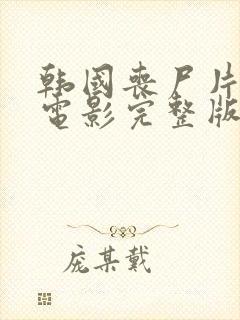 韩国丧尸片
电影完整版
庞某戴